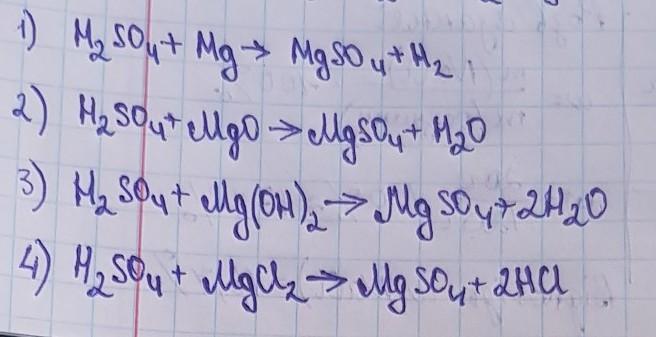 1) H₂SO₄ + Mg → MgSO₄ + H₂
2) H₂SO₄ + MgO → MgSO₄ + H₂O
3) H₂SO₄ + Mg(OH)₂ → MgSO₄ + 2H₂O
4) H₂SO₄ + MgCl₂ → MgSO₄ + 2HCl